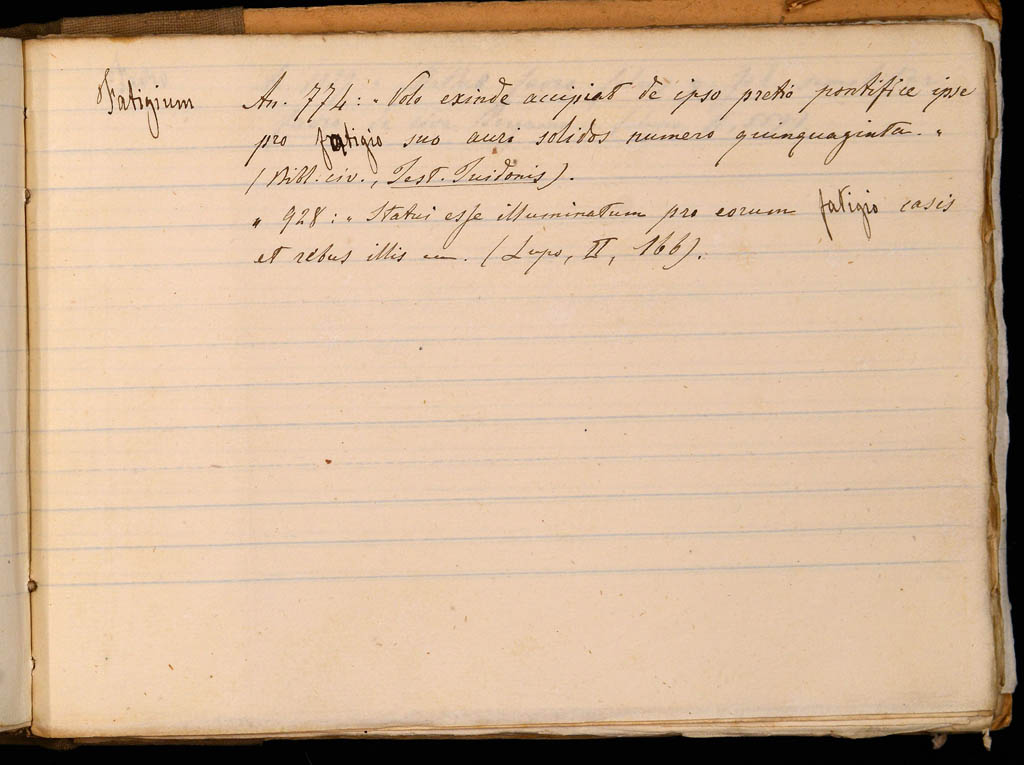 Fatigium An. 774: " Volo exinde accipiat de ipso pretio pontifice ipse
pro fatigio suo auri solidos numero quinquaginta. "
(Bibl. civ., Test. Tuidonis).
" 928: " Statui esse illuminatum pro eorum fatigio casis
et rebus illis (Lupo, II, 166).